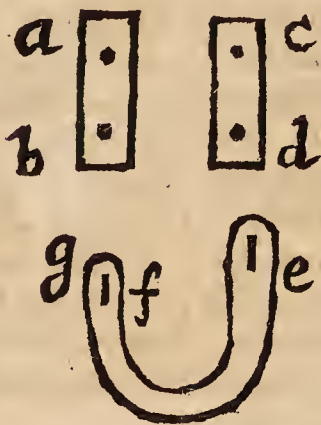 a c
b d
g f e